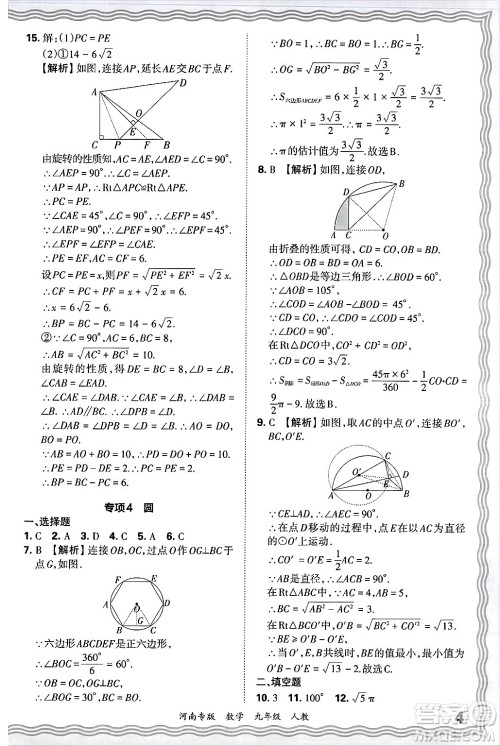 15. 解:(1)PC=PE
(2)①14-6√2
【解析】如图,连接AP,延长AE交BC于点F.
A
D
O
E
C
P
F
B
由旋转的性质知,AC=AE,∠AED=∠C=90°.
∴∠AEP=90°.∴∠AEP=∠C=90°.
∵AP=AP,∴Rt△APC≌Rt△APE.
∴PC=PE.
∵∠CAE=45°,∠C=90°,∴∠EFP=45°.
∵∠AEP=90°,∴∠PEF=90°.
∴PE=EF,∠CAE=∠AFC=45°.
设PC=PE=x,则PF=√(PE²+EF²)=√2x.
∴CF=AC=6.∴x+√2x=6.
∴x=6√2-6.
∴BP=BC-PC=14-6√2.
②∵∠C=90°,
∴AB=√(AC²+BC²)=10.
由旋转的性质,得DE=BC=8,∠D=∠B,
∠CAE=∠DAB.∵∠CAE=∠D,
∴∠DAB=∠D=∠B.∴AO=DO.
∵∠BAC+∠B=90°,∴∠BAC+∠DAB=90°.
∴AB=AO+BO=10.∴DO+BO=10.
∴PE+PB=DO+BO-DE=2.
∴PC+PB=BC=8.
专项4 圆
一、选择题
1. C 2. A 3. D 4. C 5. A 6. C
7. B 【解析】连接OB,OC,过点O作OG⊥BC于
点G,如图.
F
E
A
O
D
B
G
C
∵六边形ABCDEF是正六边形,
∴∠BOC=360°/6=60°.
∵OB=OC,∴△BOC是等边三角形.
∴∠OBC=60°.
∵BO=1,∴BC=BO=1.∴BG=CG=1/2.
∴OG=√(BO²-BG²)=√3/2.
∴S六边形ABCDEF=6×1/2×1×√3/2=3√3/2.
∴π×1²=3√3/2.∴π=3√3/2.
∴π的估计值为3√3/2.故选B.
8. B 【解析】如图,连接OD,
D
B
A
C
O
由折叠的性质,可得CD=CO,BD=BO.
∵DO=BO,∴BD=BO=DO.
∴△OBD是等边三角形.∴∠DOB=60°.
∵∠AOB=105°,
∴∠AOD=∠AOB-∠DOB=45°.
∵CD=CO,∴∠CDO=∠COD=45°.
∴∠DCO=90°.
在Rt△DCO中,CD²+CO²=DO²=36,
∴CD=CO=3√2.
∴S阴影=S扇形OAD-S△DCO=45π×6²/360-1/2CD·CO=
9/2π-9.故选B.
9. C 【解析】如图,取AC的中点O',连接BO',
BC,O'E.
C
O'
E
D
A
O
B
∵CE⊥AD,∴∠AEC=90°.
∴在点D移动的过程中,点E在以AC为直径
的⊙O'上运动.
∴CO'=O'E=1/2AC=2.
∵AB是直径,∴∠ACB=90°.
在Rt△ABC中,∵AC=4,AB=5,
∴BC=√(AB²-AC²)=√(5²-4²)=3.
在Rt△BCO'中,BO'=√(BC²+CO'²)=√13.
∵BE≥O'B-O'E,
∴当O',E,B共线时,BE的值最小,最小值为
O'B-O'E=√13-2.故选C.
二、填空题
10. 3 11. 100° 12. √5π
河南专版 数学 九年级 人教
4